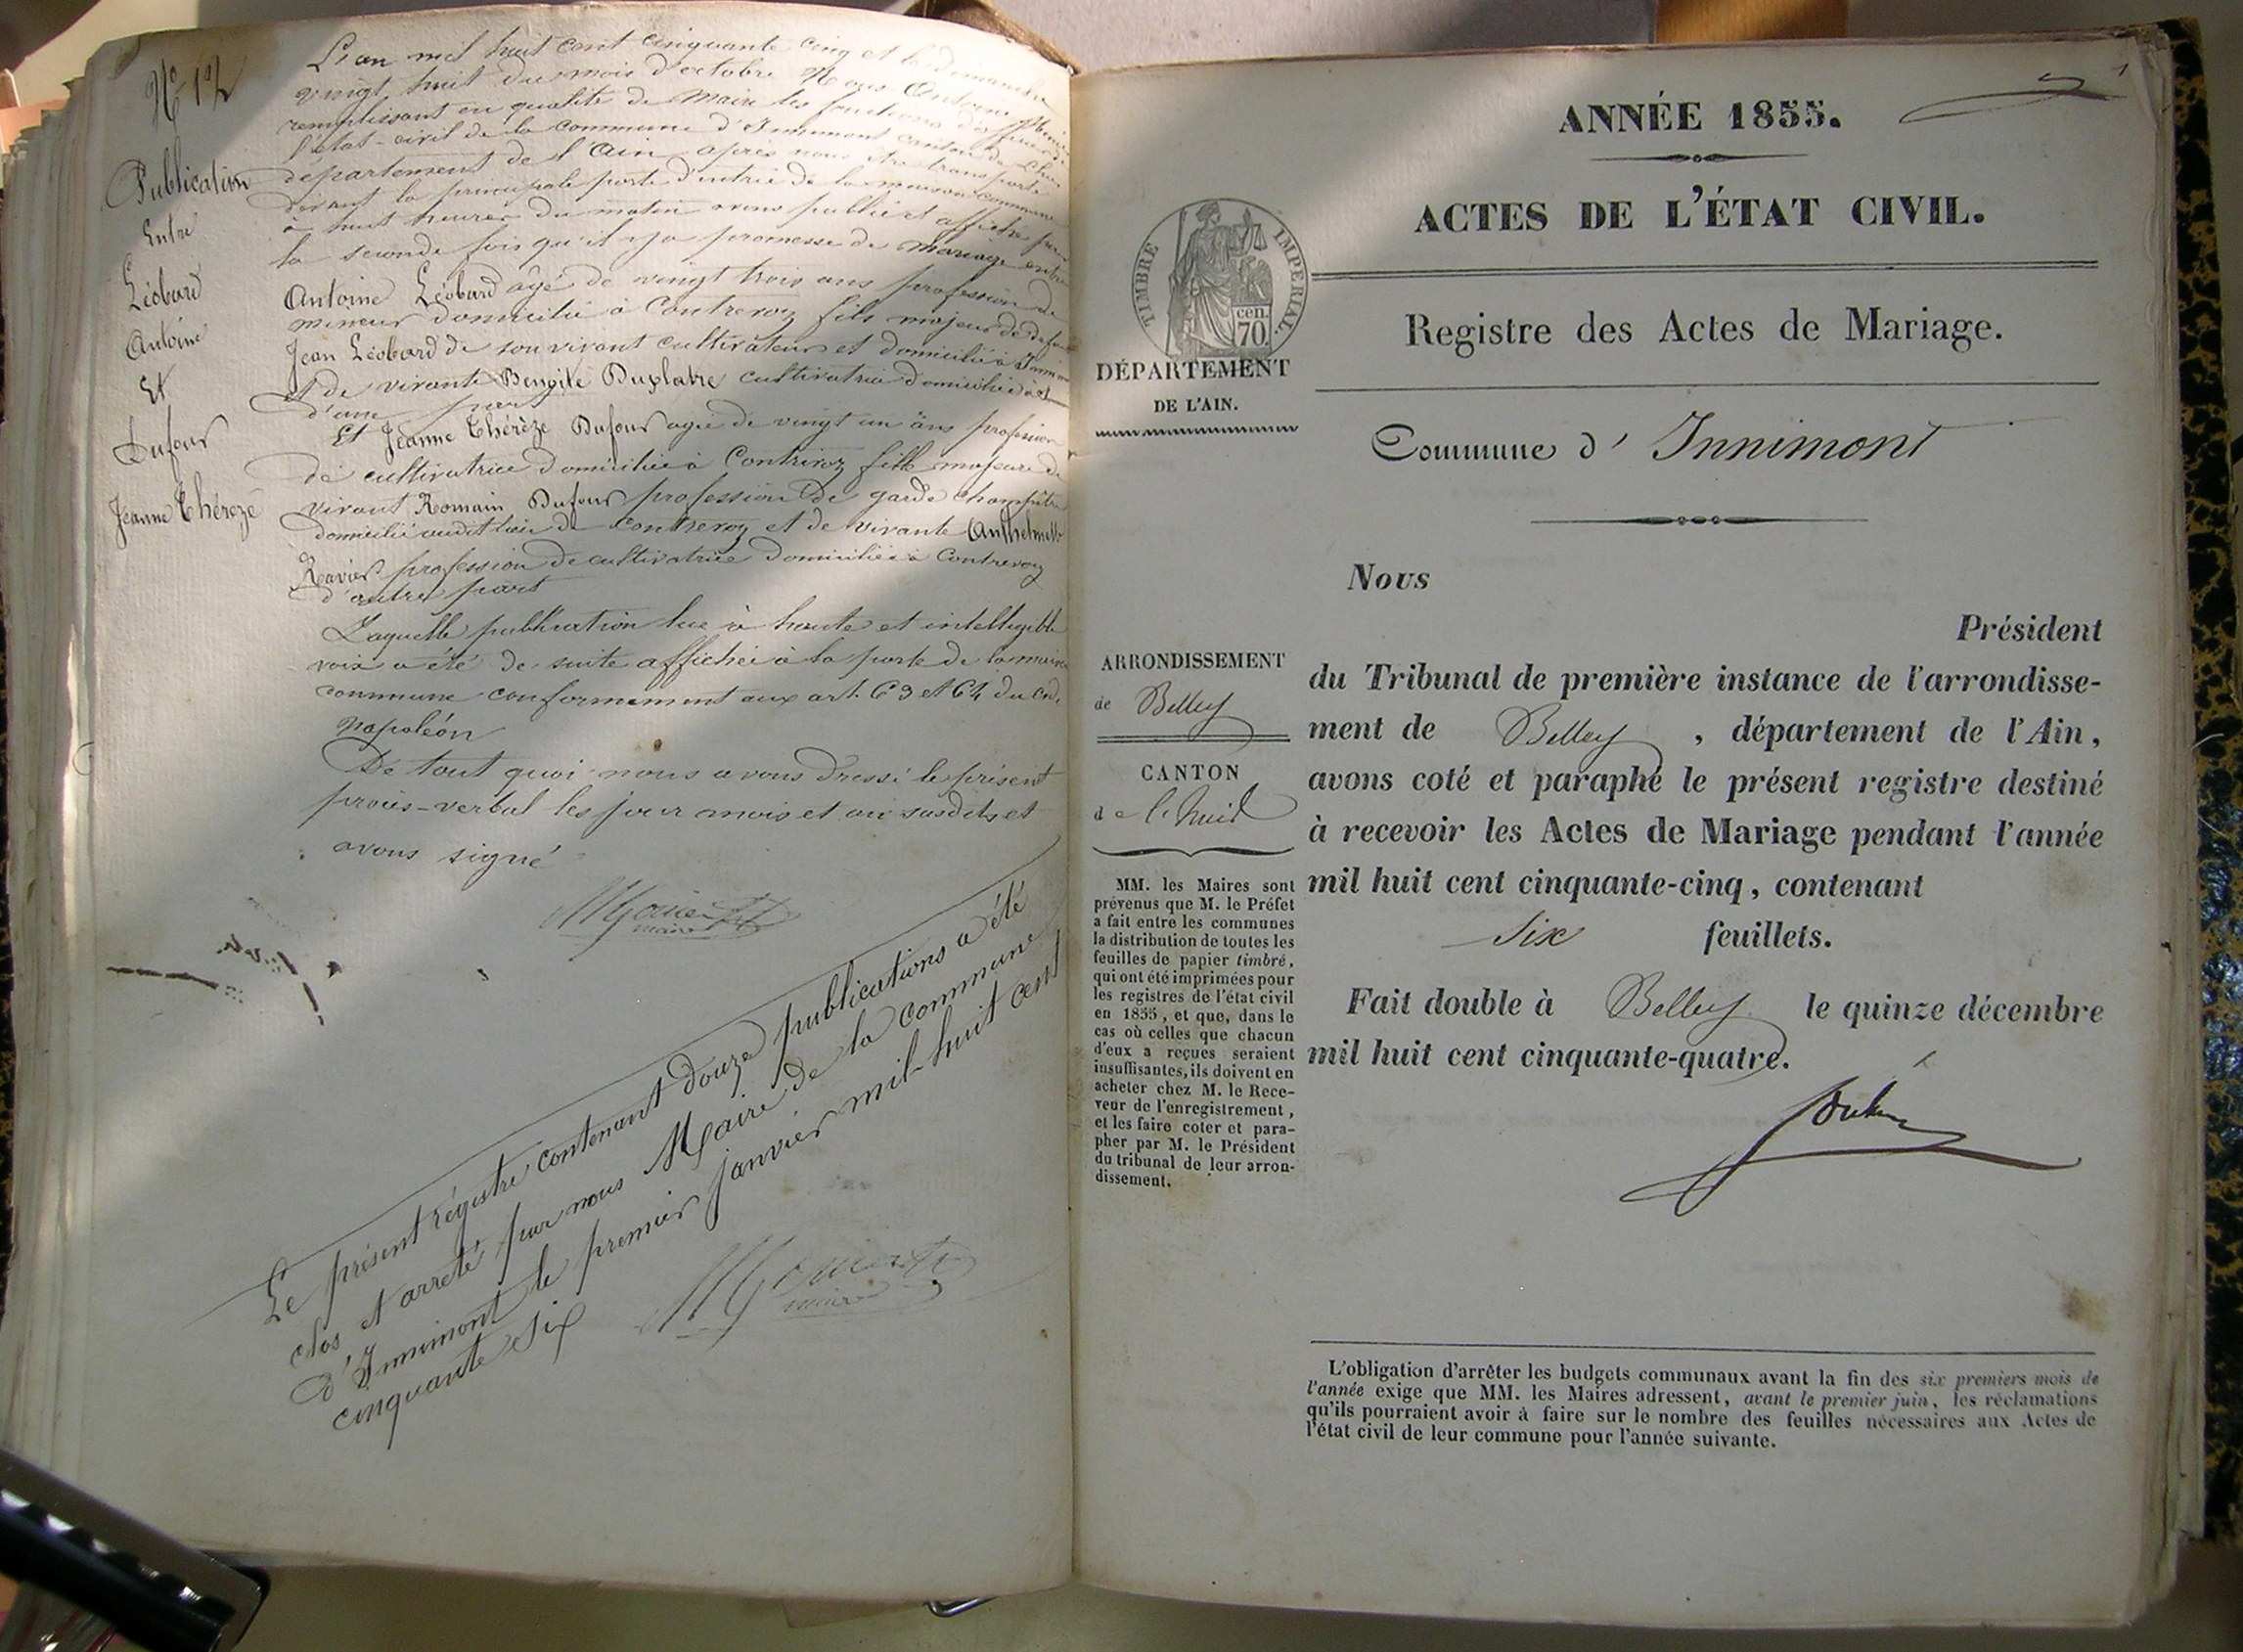 N° 12
Publication
Entre
Léobard
Antoine
Et
Dufour
Jeanne Thérèze
L'an mil huit cent cinquante cinq et le dimanche
vingt huit du mois d'octobre Nous Antoine
remplissant en qualité de Maire les fonctions d'officier de
l'état-civil de la commune d'Innimont canton de Lhuis
département de l'Ain après nous être transporté
devant la principale porte d'entrée de la maison commune
à huit heures du matin avons publié et affiché pour
la seconde fois qu'il y a promesse de mariage entre
Antoine Léobard agé de vingt trois ans profession de
mineur domicilié à Contrevoz fils majeur de défunt
Jean Léobard de son vivant cultivateur et domicilié à Innimont
et de vivante Benoite Duplatre cultivatrice domiciliée
d'une part
Et Jeanne Thérèze Dufour agée de vingt un ans profession
de cultivatrice domiciliée à Contrevoz fille majeure de
vivant Romain Dufour profession de garde champêtre
domicilié audit lieu de Contrevoz et de vivante Anthelmette
Ravier profession de cultivatrice domiciliée à Contrevoz
d'autre part
Laquelle publication lue à haute et intelligible
voix a été de suite affichée à la porte de la maison
commune conformement aux art. 63 et 64 du cod.
Napoléon
De tout quoi nous avons dressé le présent
procès-verbal les jour mois et an susdits et
avons signé
maire
Le présent régistre contenant douze publications a été
clos et arreté par nous Maire de la commune
d'Innimont le premier janvier mil-huit cent
cinquante six
maire
1
ANNÉE 1855.
ACTES DE L'ÉTAT CIVIL.
TIMBRE IMPÉRIAL.
cen.
70.
DÉPARTEMENT
DE L'AIN.
Registre des Actes de Mariage.
Commune d' Innimont
Nous
Président
du Tribunal de première instance de l'arrondisse-
ment de Belley , département de l'Ain,
avons coté et paraphé le présent registre destiné
à recevoir les Actes de Mariage pendant l'année
mil huit cent cinquante-cinq, contenant
Six feuillets.
Fait double à Belley le quinze décembre
mil huit cent cinquante-quatre.
ARRONDISSEMENT
de Belley
CANTON
de Lhuis
MM. les Maires sont
prévenus que M. le Préfet
a fait entre les communes
la distribution de toutes les
feuilles de papier timbré,
qui ont été imprimées pour
les registres de l'état civil
en 1855, et que, dans le
cas où celles que chacun
d'eux a reçues seraient
insuffisantes, ils doivent en
acheter chez M. le Rece-
veur de l'enregistrement,
et les faire coter et para-
pher par M. le Président
du tribunal de leur arron-
dissement.
L'obligation d'arrêter les budgets communaux avant la fin des six premiers mois de
l'année exige que MM. les Maires adressent, avant le premier juin, les réclamations
qu'ils pourraient avoir à faire sur le nombre des feuilles nécessaires aux Actes de
l'état civil de leur commune pour l'année suivante.